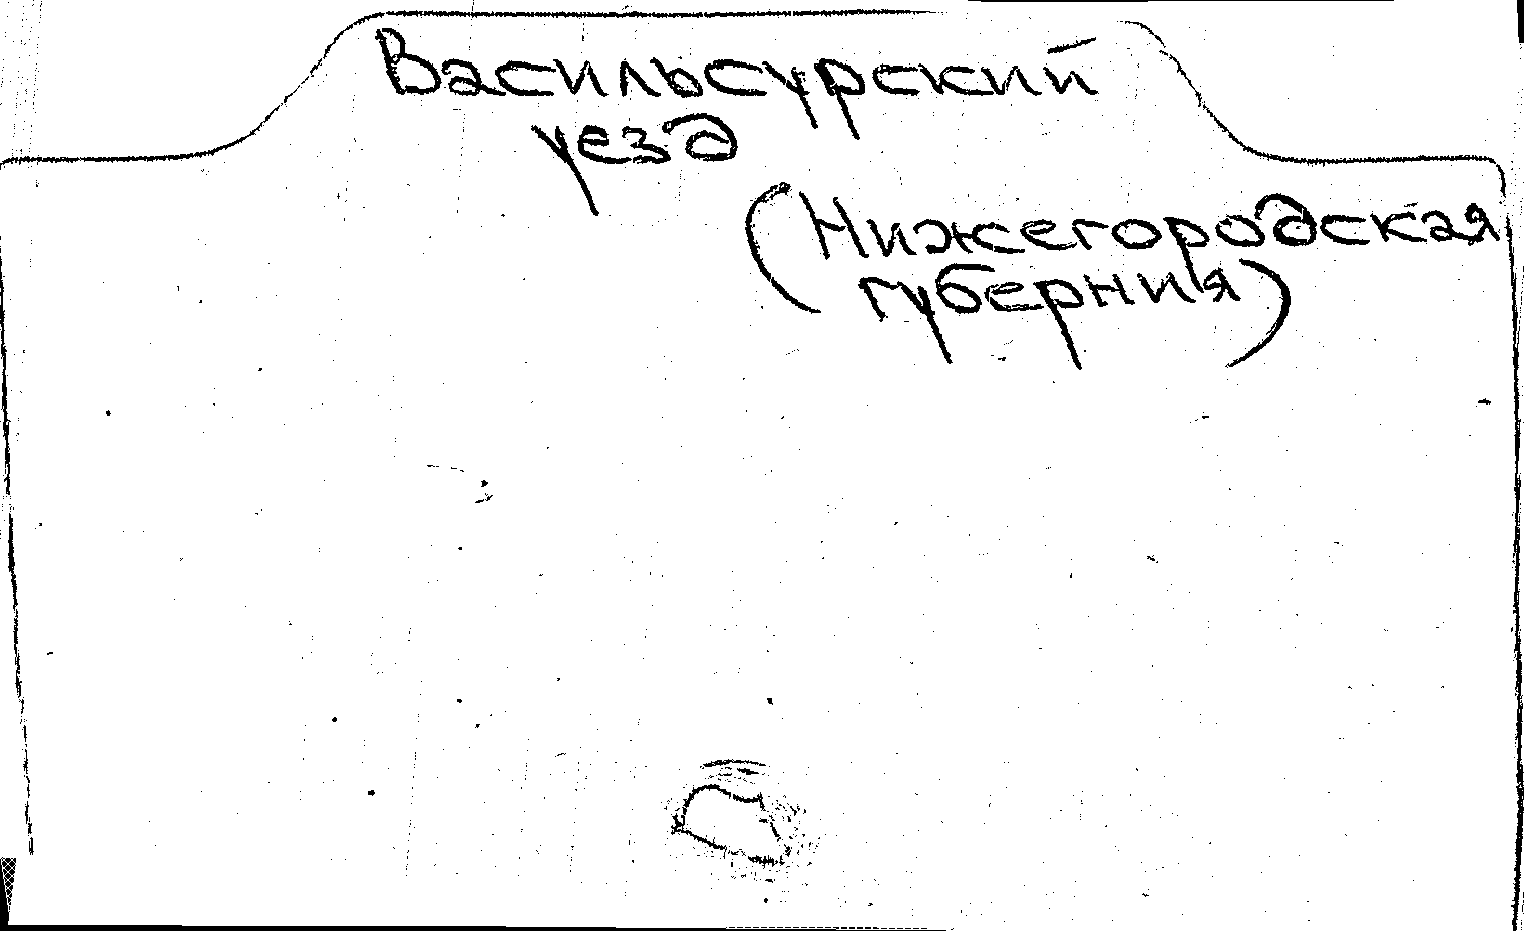 Васильсурский
уезд
(Нижегородская
губерния)